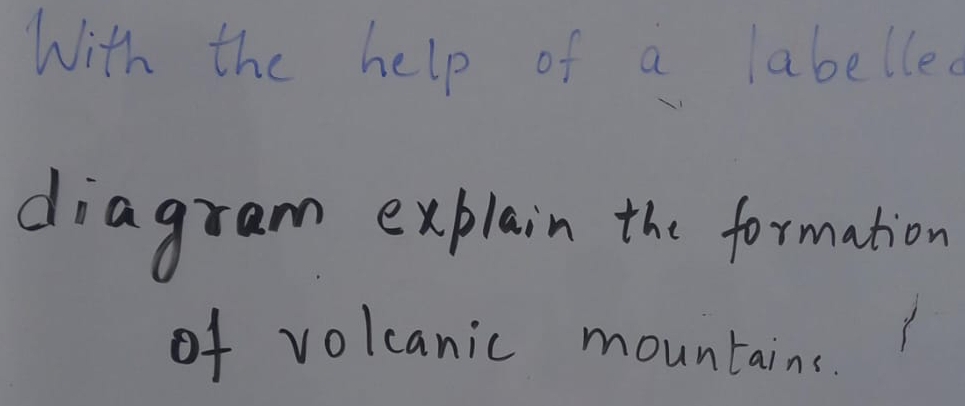 With the help of a labelled
diagram explain the formation
of volcanic mountains.